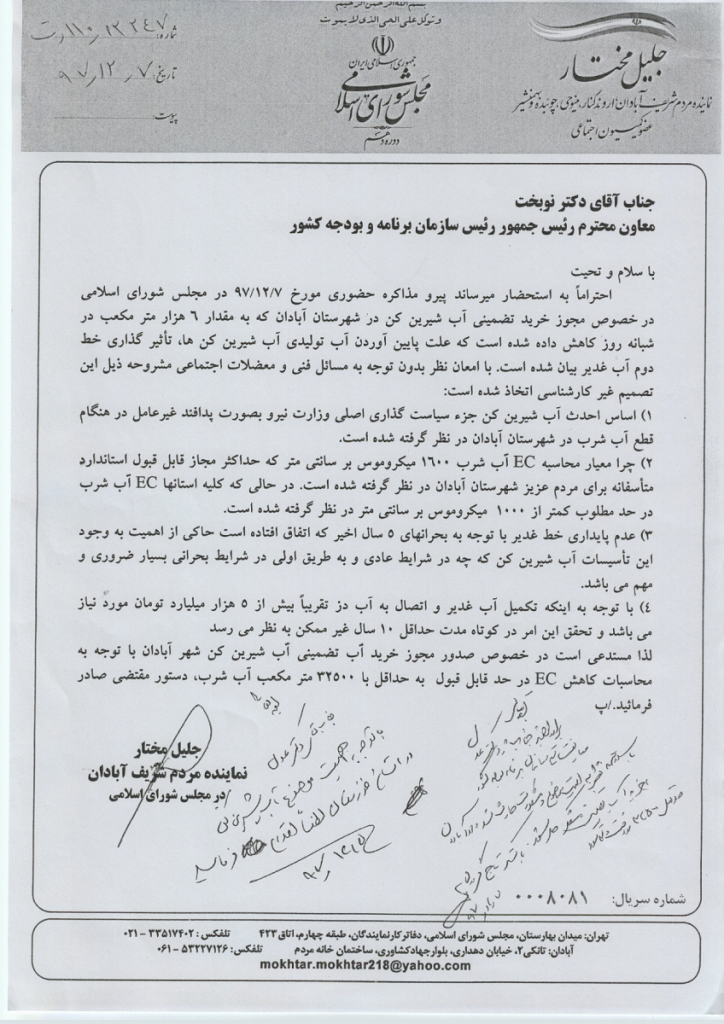 بسم الله الرحمن الرحیم
و توکل علی الحی الذی لا یموت
جمهوری اسلامی ایران
مجلس شورای اسلامی
دوره دهم
جلیل مختار
نماینده مردم شریف آبادان، اروندکنار، مینوحی، چوئبده و بهمنشیر
عضو کمیسیون اجتماعی
شماره:
تاریخ: ۹۷,۱۲,۷
پیوست:
جناب آقای دکتر نوبخت
معاون محترم رئیس جمهور رئیس سازمان برنامه و بودجه کشور
با سلام و تحیت
احتراماً به استحضار میرساند پیرو مذاکره حضوری مورخ ۹۷/۱۲/۷ در مجلس شورای اسلامی
در خصوص مجوز خرید تضمینی آب شیرین کن در شهرستان آبادان که به مقدار ۶ هزار متر مکعب در
شبانه روز کاهش داده شده است که علت پایین آوردن آب تولیدی آب شیرین کن ها، تأثیر گذاری خط
دوم آب غدیر بیان شده است. با امعان نظر بدون توجه به مسائل فنی و معضلات اجتماعی مشروحه ذیل این
تصمیم غیر کارشناسی اتخاذ شده است:
۱) اساس احدث آب شیرین کن جزء سیاست گذاری اصلی وزارت نیرو بصورت پدافند غیرعامل در هنگام
قطع آب شرب در شهرستان آبادان در نظر گرفته شده است.
۲) چرا معیار محاسبه EC آب شرب ۱۶۰۰ میکروموس بر سانتی متر که حداکثر مجاز قابل قبول استاندارد
متأسفانه برای مردم عزیز شهرستان آبادان در نظر گرفته شده است. در حالی که کلیه استانها EC آب شرب
در حد مطلوب کمتر از ۱۰۰۰ میکروموس بر سانتی متر در نظر گرفته شده است.
۳) عدم پایداری خط غدیر با توجه به بحرانهای ۵ سال اخیر که اتفاق افتاده است حاکی از اهمیت به وجود
این تأسیسات آب شیرین کن که چه در شرایط عادی و به طریق اولی در شرایط بحرانی بسیار ضروری و
مهم می باشد.
۴) با توجه به اینکه تکمیل آب غدیر و اتصال به آب دز تقریباً بیش از ۵ هزار میلیارد تومان مورد نیاز
می باشد و تحقق این امر در کوتاه مدت حداقل ۱۰ سال غیر ممکن به نظر می رسد
لذا مستدعی است در خصوص صدور مجوز خرید آب تضمینی آب شیرین کن شهر آبادان با توجه به
محاسبات کاهش EC در حد قابل قبول به حداقل با ۳۲۵۰۰ متر مکعب آب شرب، دستور مقتضی صادر
فرمائید./پ
جلیل مختار
نماینده مردم شریف آبادان
در مجلس شورای اسلامی
با توجه به اهمیت موضوع آب شیرین کن
در استان خوزستان لطفاً اقدام فرمایید
شماره سریال: ۰۰۰۸۰۸۱
تهران: میدان بهارستان، مجلس شورای اسلامی، دفاتر کار نمایندگان، طبقه چهارم، اتاق ۴۲۳ تلفکس: ۳۳۵۱۷۴۰۲ - ۰۲۱
آبادان: تانکی۲، خیابان دهداری، بلوار جهاد کشاورزی، ساختمان خانه مردم تلفکس: ۵۳۲۲۷۱۲۶ - ۰۶۱
mokhtar.mokhtar218@yahoo.com